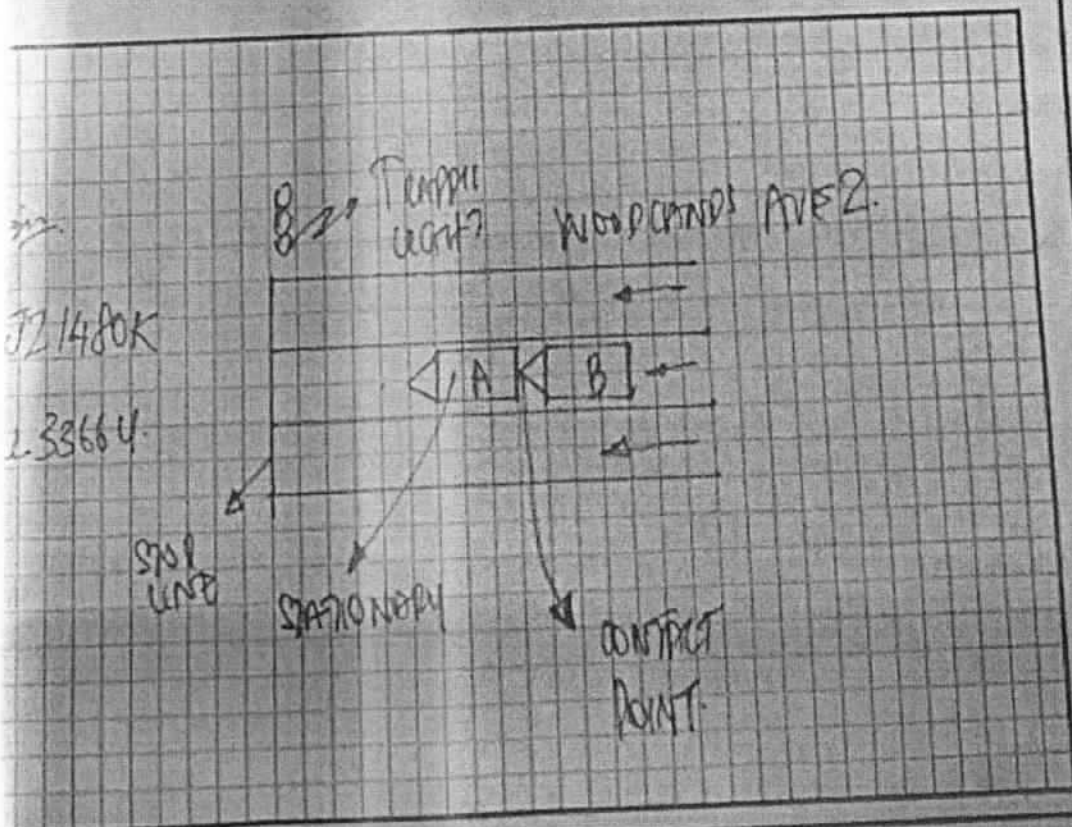 TRAFFIC
LIGHT
WOODLANDS AVE 2.
JZ1480K
33664
A
B
STOP
LINE
STATIONARY
CONTACT
POINT.